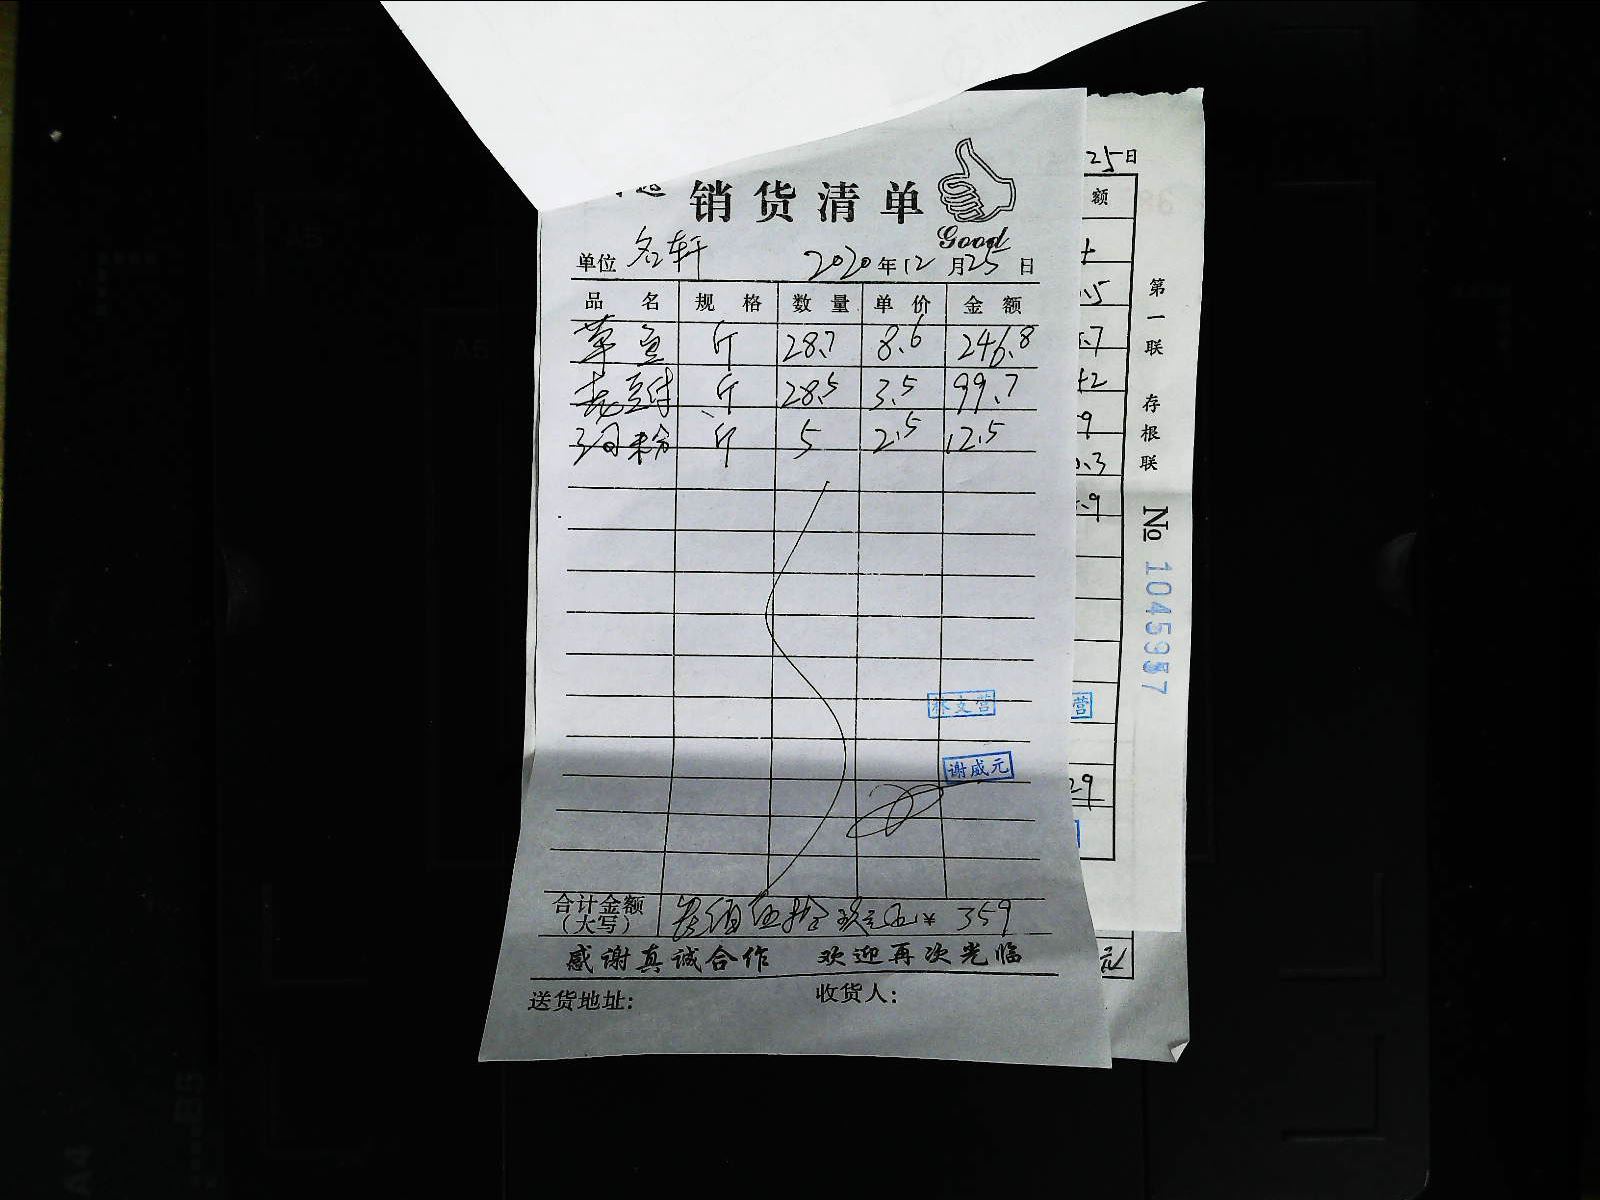 销货清单
Good
单位 名轩 2020年12月25日
品名 规格 数量 单价 金额
草鱼 斤 28.7 8.6 246.8
老豆付 斤 28.5 3.5 99.7
河粉 斤 5 2.5 12.5
林文营
谢威元
合计金额（大写） 叁佰伍拾玖元 ¥ 359
感谢真诚合作 欢迎再次光临
送货地址: 收货人:
25日
额
.5
.7
9
.3
.9
营
29
元
第一联 存根联
No 1045957